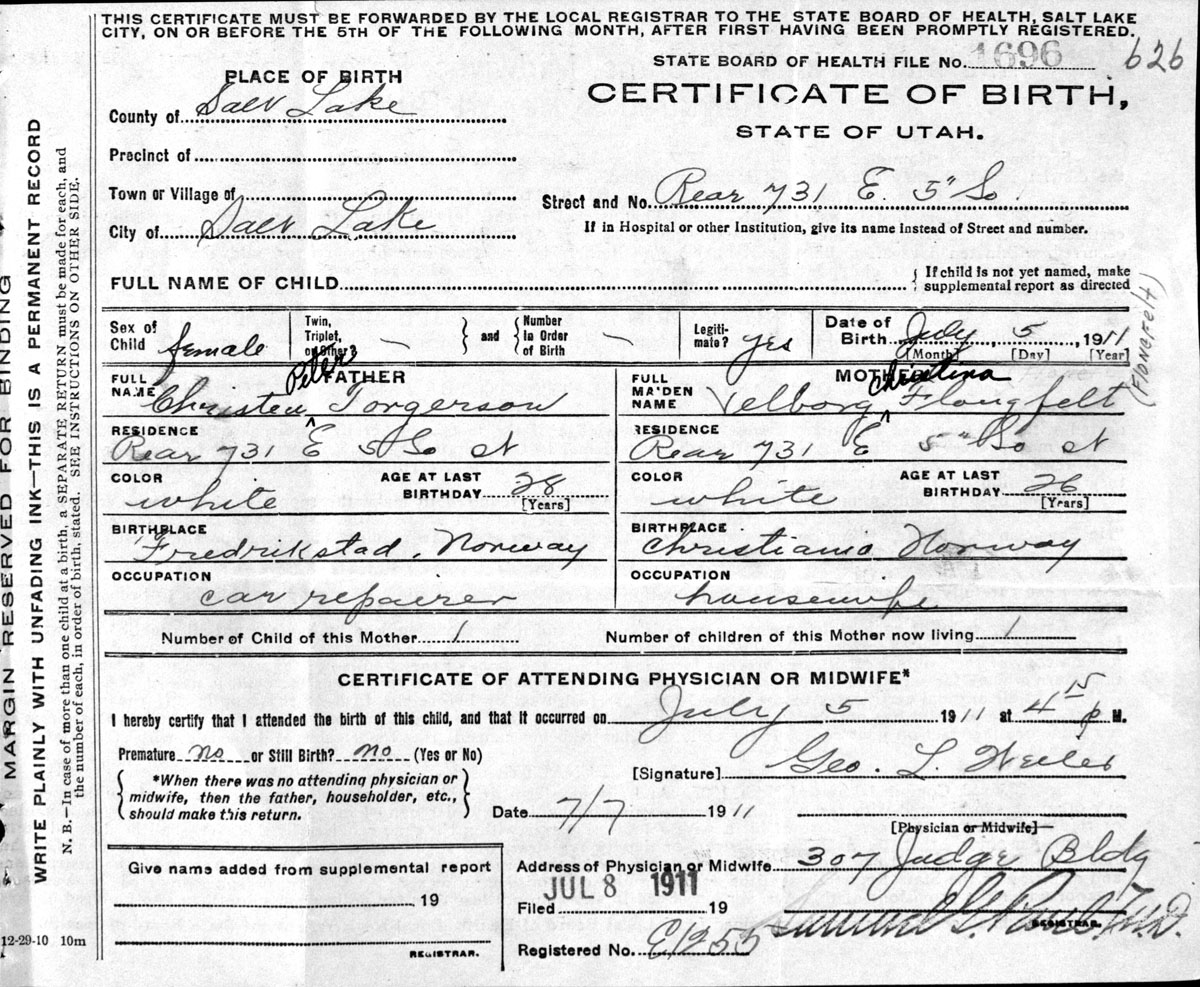 THIS CERTIFICATE MUST BE FORWARDED BY THE LOCAL REGISTRAR TO THE STATE BOARD OF HEALTH, SALT LAKE
CITY, ON OR BEFORE THE 5TH OF THE FOLLOWING MONTH, AFTER FIRST HAVING BEEN PROMPTLY REGISTERED.
STATE BOARD OF HEALTH FILE No. 1696 626
CERTIFICATE OF BIRTH,
STATE OF UTAH.
PLACE OF BIRTH
County of Salt Lake
Precinct of
Town or Village of
City of Salt Lake
Street and No. Rear 731 E. 5" So.
If in Hospital or other Institution, give its name instead of Street and number.
FULL NAME OF CHILD
If child is not yet named, make
supplemental report as directed
Sex of Child female
Twin, Triplet, or Other? — and Number in Order of Birth —
Legiti-mate? yes
Date of Birth July 5, 1911
[Month] [Day] [Year]
FATHER
FULL NAME Christen Peter Torgerson
RESIDENCE
Rear 731 E 5 So st
COLOR white
AGE AT LAST BIRTHDAY 28 [Years]
BIRTHPLACE
Fredrikstad, Norway
OCCUPATION
car repairer
MOTHER
FULL MAIDEN NAME Velborg Christina Flongfelt
(Flongfelt)
RESIDENCE
Rear 731 E 5" So st
COLOR white
AGE AT LAST BIRTHDAY 26 [Years]
BIRTHPLACE
Christiana Norway
OCCUPATION
housewife
Number of Child of this Mother 1
Number of children of this Mother now living 1
CERTIFICATE OF ATTENDING PHYSICIAN OR MIDWIFE*
I hereby certify that I attended the birth of this child, and that it occurred on July 5 1911 at 4 15 p M.
Premature no or Still Birth? no (Yes or No)
*When there was no attending physician or
midwife, then the father, householder, etc.,
should make this return.
[Signature] Geo. L. Weiler
Date 7/7 1911
[Physician or Midwife]
Give name added from supplemental report
19
REGISTRAR.
Address of Physician or Midwife 307 Judge Bldg
Filed JUL 8 1911 19
REGISTRAR.
Registered No. E1255
12-29-10 10m
MARGIN RESERVED FOR BINDING
WRITE PLAINLY WITH UNFADING INK—THIS IS A PERMANENT RECORD
N. B.—In case of more than one child at a birth, a SEPARATE RETURN must be made for each, and
the number of each, in order of birth, stated. SEE INSTRUCTIONS ON OTHER SIDE.